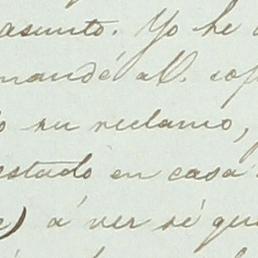 asunto. Yo he
mandé al. cop
o su reclamo,
estado en casa
e) á ver sé qui